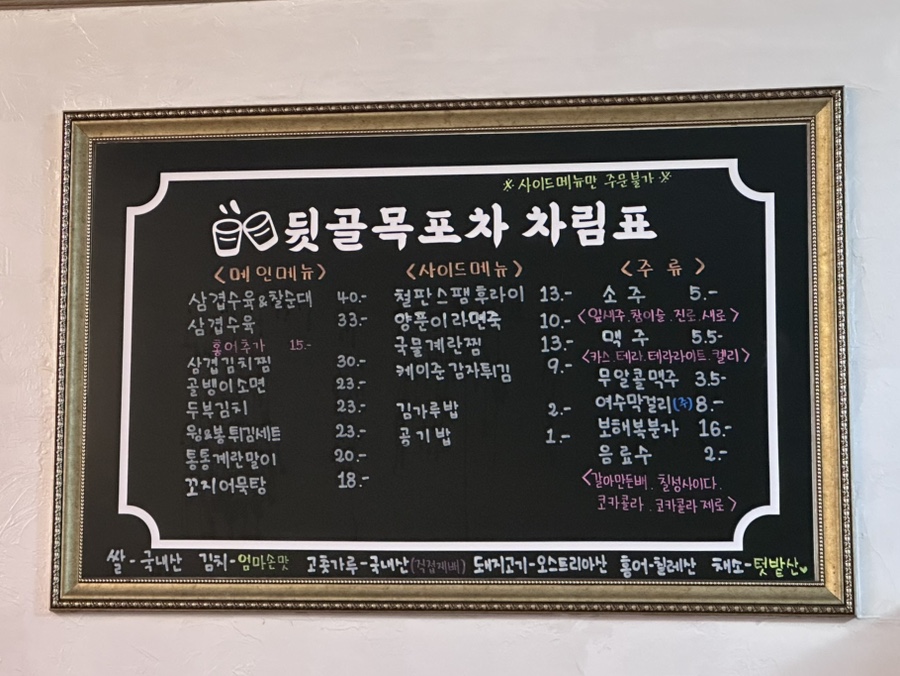 ※사이드메뉴만 주문불가※
뒷골목포차 차림표
<메인메뉴>
삼겹수육&찰순대 40.-
삼겹수육 33.-
홍어추가 15.-
삼겹김치찜 30.-
골뱅이소면 23.-
두부김치 23.-
윙&봉튀김세트 23.-
통통계란말이 20.-
꼬지어묵탕 18.-
<사이드메뉴>
철판스팸후라이 13.-
양푼이라면죽 10.-
국물계란찜 13.-
케이준감자튀김 9.-
김가루밥 2.-
공기밥 1.-
<주류>
소주 5.-
<잎새주.참이슬.진로.새로>
맥주 5.5-
<카스.테라.테라라이트.켈리>
무알콜맥주 3.5-
여수막걸리 8.-
보해복분자 16.-
음료수 2.-
<갈아만든배. 칠성사이다.
코카콜라. 코카콜라제로>
쌀-국내산 김치-엄마손맛 고춧가루-국내산(직접재배) 돼지고기-오스트리아산 홍어-칠레산 채소-텃밭산♥